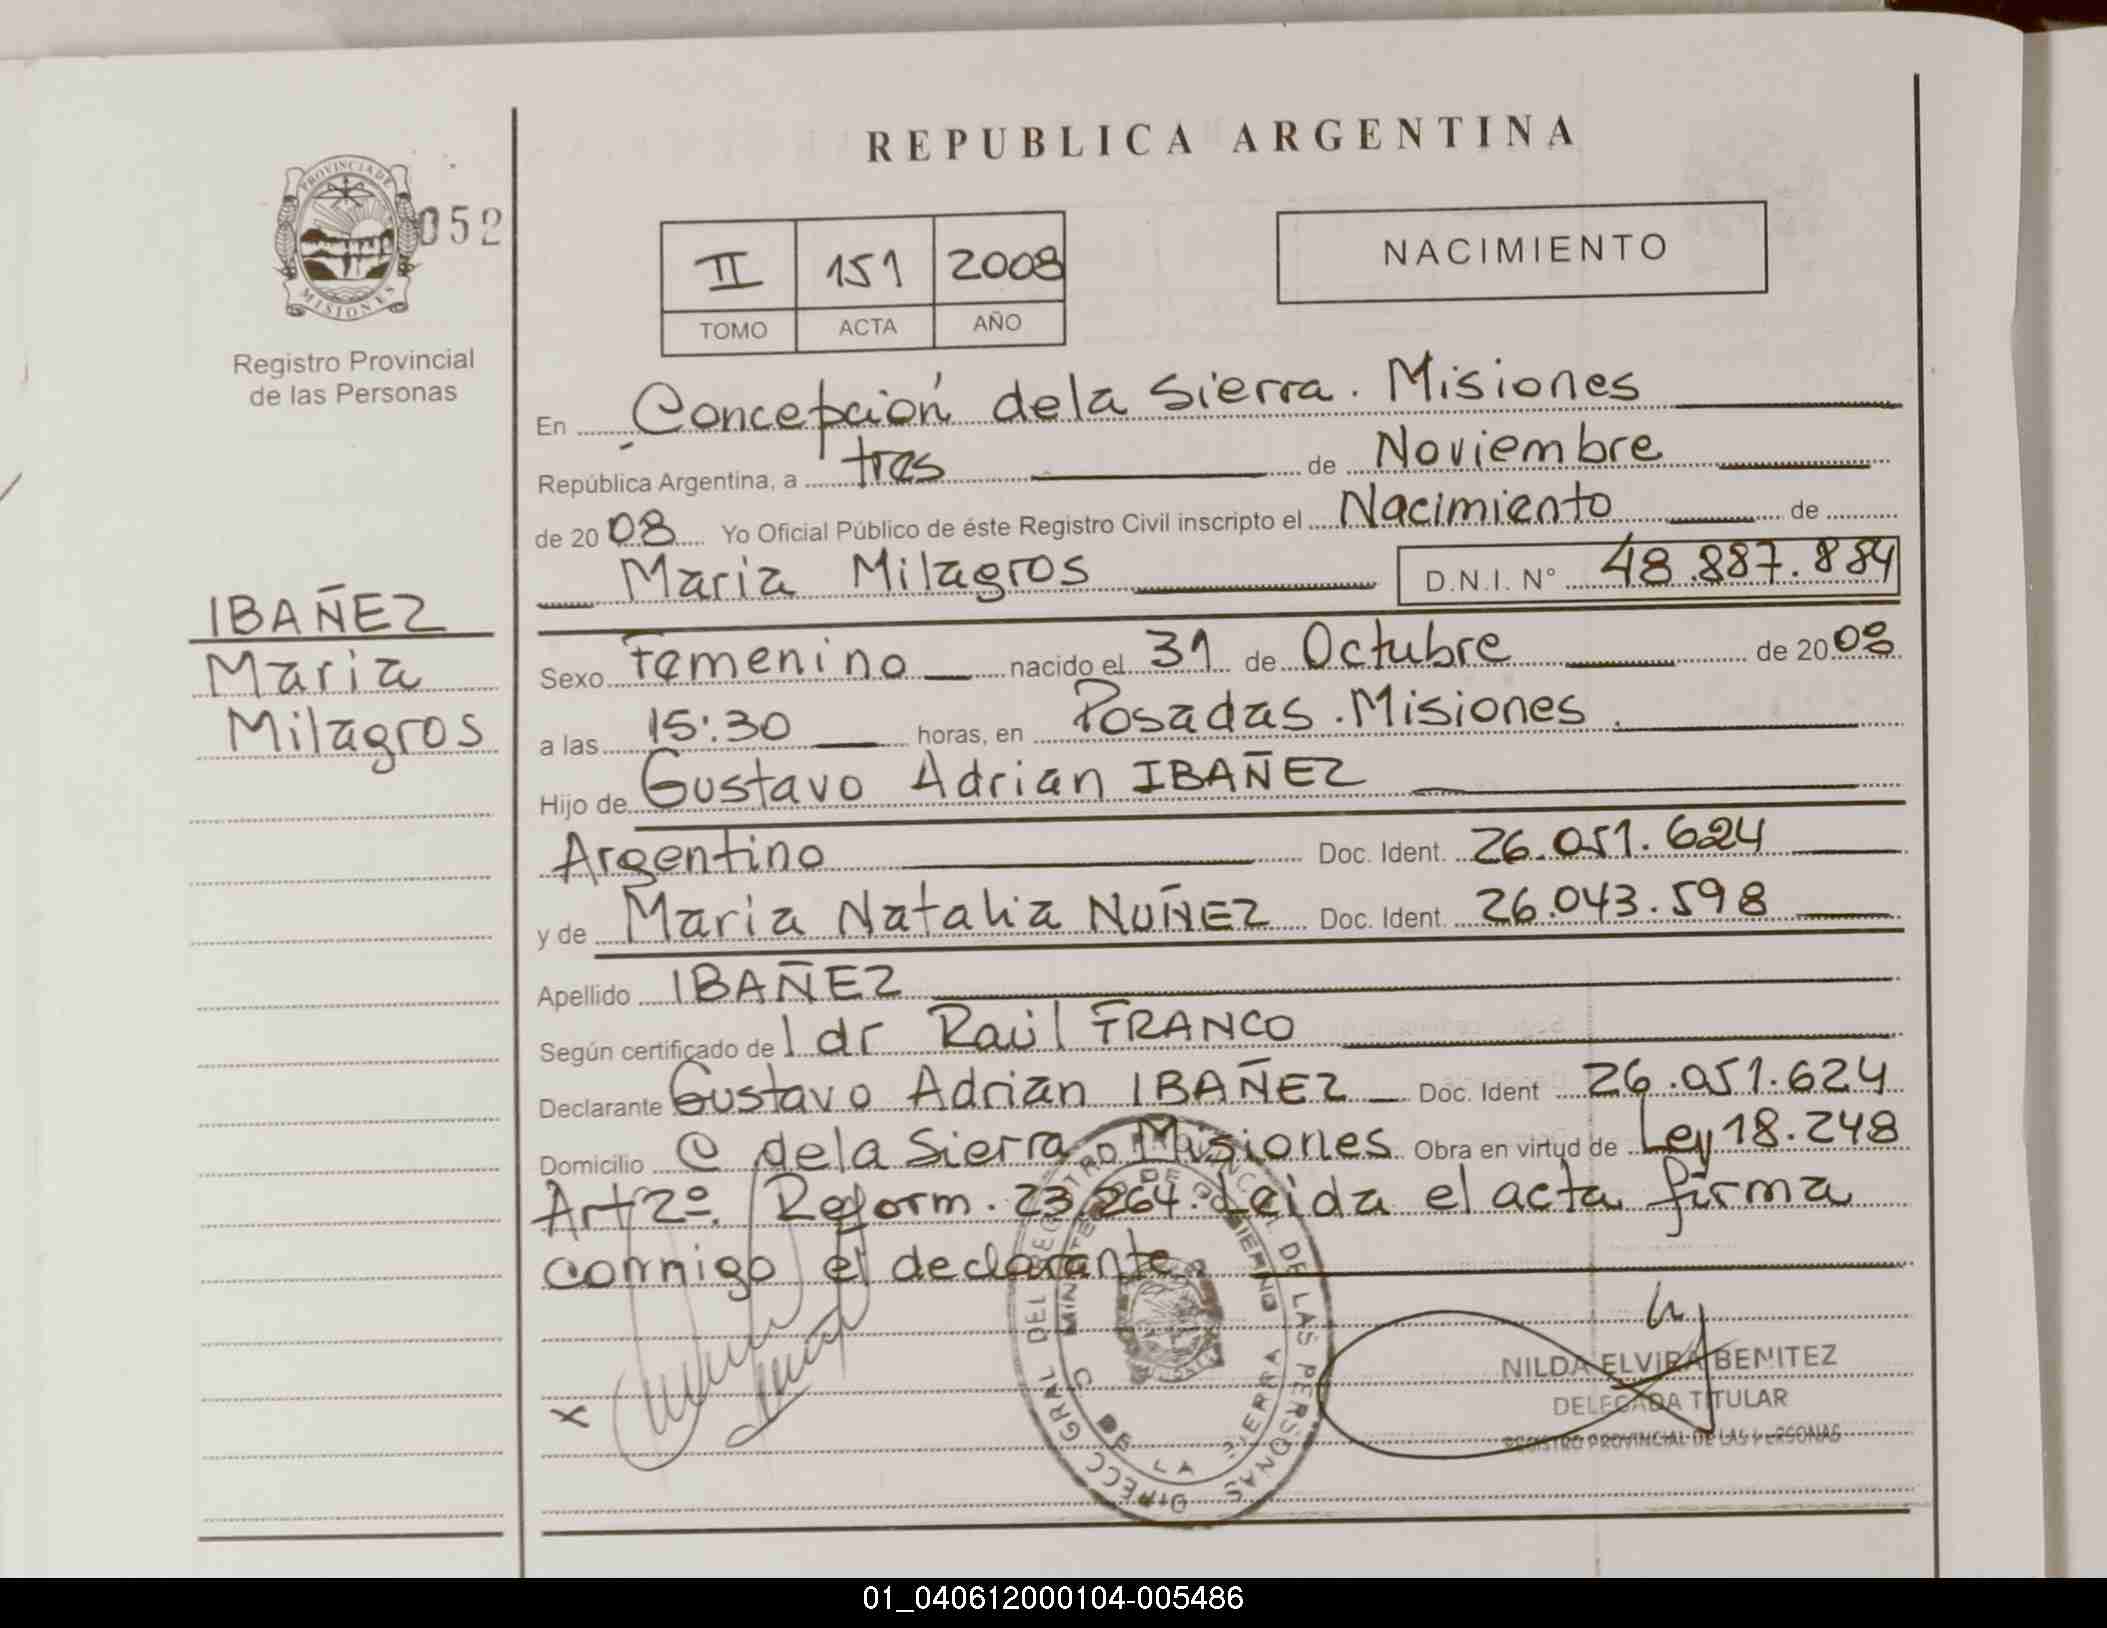 REPUBLICA ARGENTINA
PROVINCIA DE
MISIONES
052
Registro Provincial
de las Personas
II 151 2008
TOMO ACTA AÑO
NACIMIENTO
IBAÑEZ
Maria
Milagros
En Concepción dela Sierra. Misiones
República Argentina, a tres de Noviembre
de 2008 Yo Oficial Público de éste Registro Civil inscripto el Nacimiento de
Maria Milagros D.N.I. N° 48.887.884
Sexo Femenino nacido el 31 de Octubre de 2008
a las 15:30 horas, en Posadas. Misiones.
Hijo de Gustavo Adrian IBAÑEZ
Argentino Doc. Ident. 26.051.624
y de Maria Natalia NUÑEZ Doc. Ident. 26.043.598
Apellido IBAÑEZ
Según certificado de l dr Raúl FRANCO
Declarante Gustavo Adrian IBAÑEZ Doc. Ident 26.051.624
Domicilio C dela Sierra Misiones Obra en virtud de Ley 18.248
Art 2º. Reform. 23.264. Leida el acta firma
conmigo el declarante.
X
DIRECC GRAL DEL REGISTRO PROVINCIAL DE LAS PERSONAS
MINISTERIO DE GOBIERNO
C DE LA SIERRA
NILDA ELVIRA BENITEZ
DELEGADA TITULAR
REGISTRO PROVINCIAL DE LAS PERSONAS
01_040612000104-005486